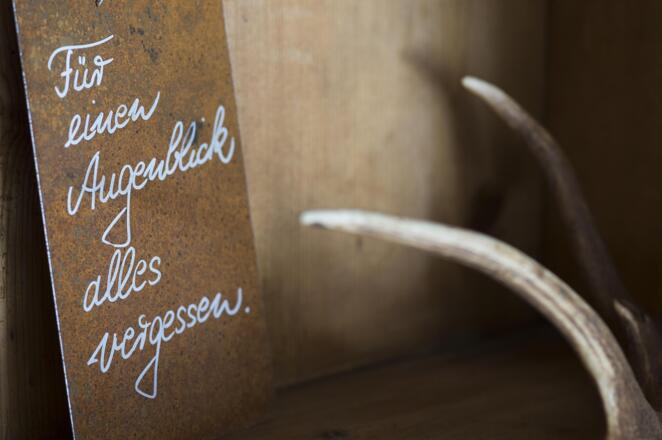 Für
einen
Augenblick
alles
vergessen.